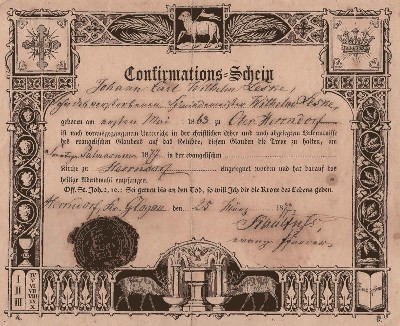 Confirmations-Schein
Johann Carl Wilhelm Leske
Wilhelm Leske,
geboren am ersten Mai 1863 zu Herrndorf
ist nach vorausgegangenem Unterricht in der christlichen Lehre und nach abgelegtem Bekenntnisse
des evangelischen Glaubens auf das Gelübde, diesem Glauben die Treue zu halten, am
Palmarum 1877 in der evangelischen
Kirche zu Herrndorf confirmirt und hat darauf das
heilige Abendmahl empfangen.
Off. St. Joh. 2, 10.: Sei getreu bis an den Tod, so will Ich dir die Krone des Lebens geben.
Herrndorf, Kr. Glogau den 25 März 1877
evang. Pfarrer
I II III
IV V VI VII VIII IX X
A.